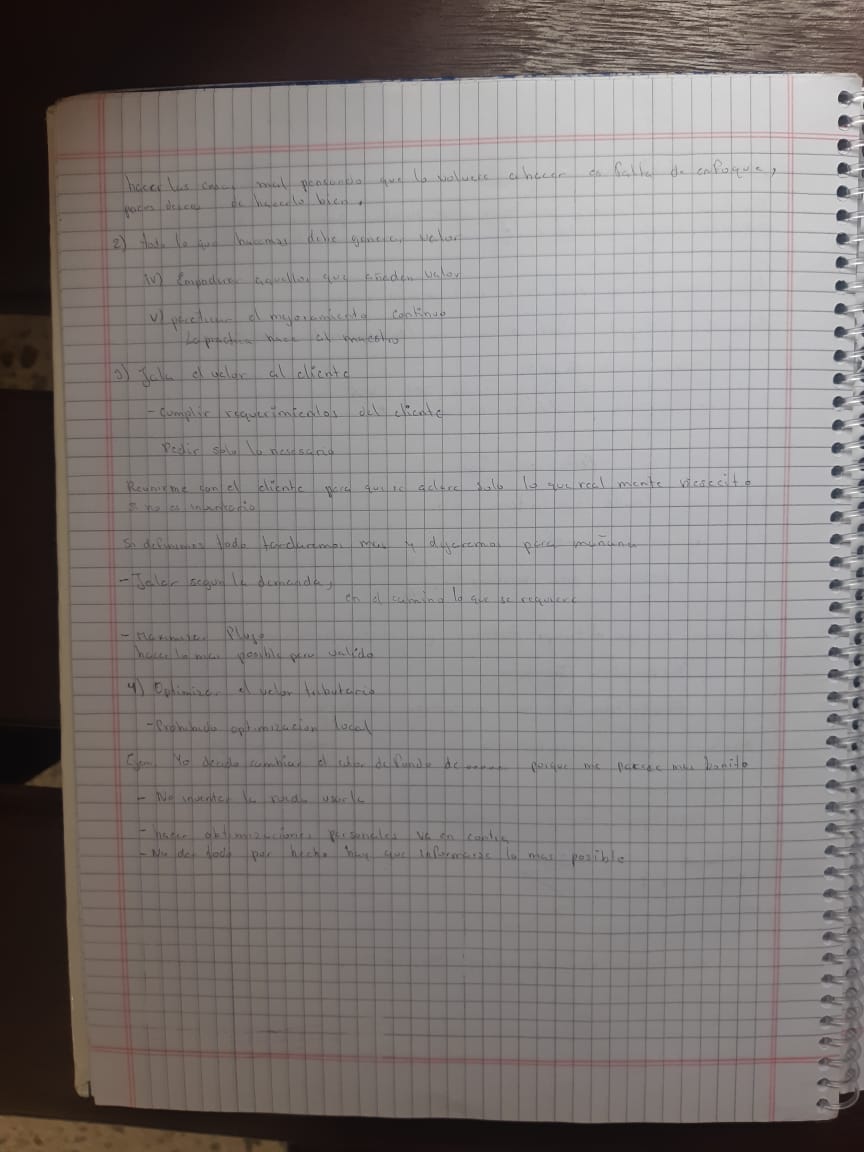 hacer las cosas mal pensando que lo volvere a hacer es falta de enfoque,
de hacerlo bien.
2) todo lo que hacemos debe generar valor
IV) Empoderar aquellos que añeden valor
V) practicar el mejoramiento continuo
La practica hace al maestro
3) Jala el valor al cliente
- Cumplir requerimientos del cliente
Pedir solo lo necesario
Reunirme con el cliente para que se aclare solo lo que real mente nesecito
si no es inventario
Si definimos todo tardaremos mas y dejaremos para mañana
- Jalar segun la demanda,
en el camino lo que se requiere
- Maximizar Flujo
hacer lo mas posible pero valido
4) Optimizar el valor tributario
- Prohibido optimizacion local
Ejem. Yo decido cambiar el color de fondo de ...... porque me parece mas bonito
- No inventer la rueda usarla
- hacer optimizaciones personales va en contra
- No dar todo por hecho hay que informarse lo mas posible